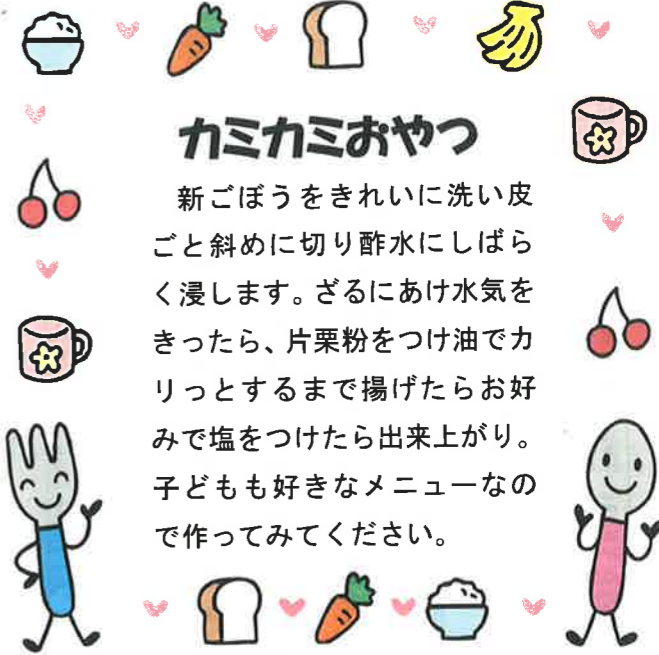 カミカミおやつ
新ごぼうをきれいに洗い皮
ごと斜めに切り酢水にしばら
く浸します。ざるにあけ水気を
きったら、片栗粉をつけ油でカ
リっとするまで揚げたらお好
みで塩をつけたら出来上がり。
子どもも好きなメニューなの
で作ってみてください。